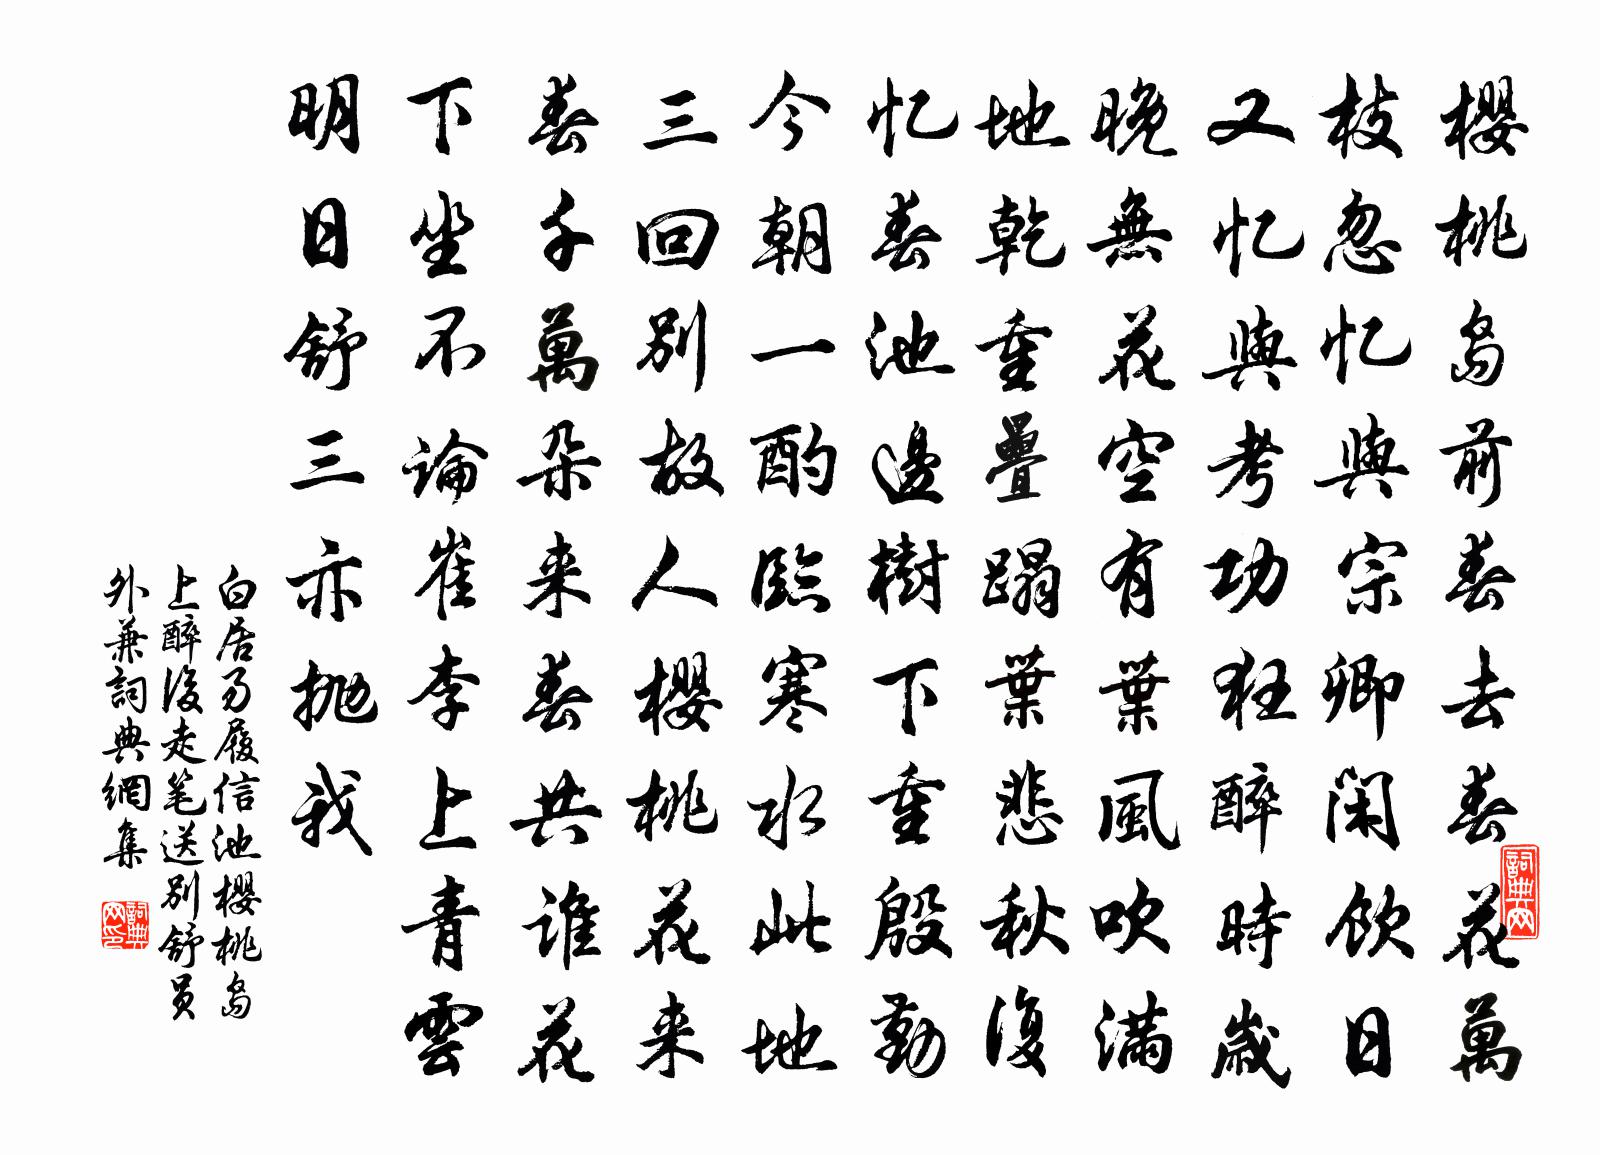 櫻桃島前春去春花萬
枝忽忆與宗卿闲飲日
又忆與考功狂醉時歲
晚無花空有葉風吹滿
地乾重疊蹋葉悲秋復
忆春池邊樹下重殷勤
今朝一酌臨寒水此地
三回別故人櫻桃花来
春千萬朵来春共誰花
下坐不論崔李上青雲
明日舒三亦抛我
白居易履信池櫻桃島
上醉後走笔送別舒員
外兼詞典網集
詞典网
詞典网印